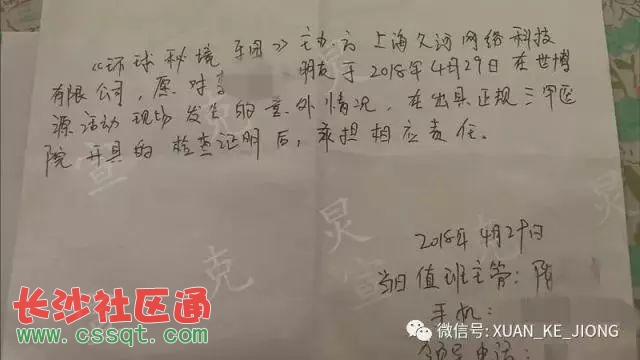 《环球秘境乐园》主办方上海久游网络科技
有限公司,愿对 朋友于2018年4月29日在世博
源活动现场发生的意外情况,在出具正规三甲医
院开具的检查证明后,承担相应责任。
2018年4月29日
当日值班主管:陈
手机:
电话:
宣
克
炅
宣
长沙社区通
www.cssqt.com
微信号:XUAN_KE_JIONG